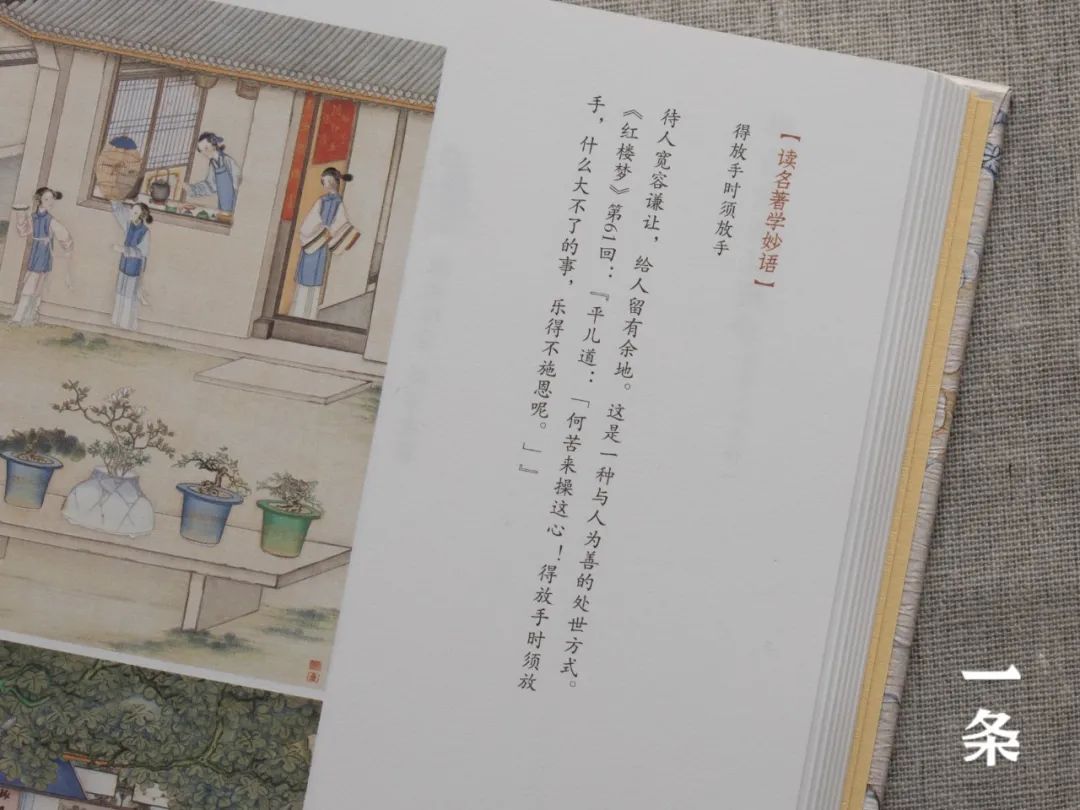 【读名著学妙语】
得放手时须放手
待人宽容谦让，给人留有余地。这是一种与人为善的处世方式。
《红楼梦》第61回：『平儿道：「何苦来操这心！得放手时须放
手，什么大不了的事，乐得不施恩呢。」』
一条